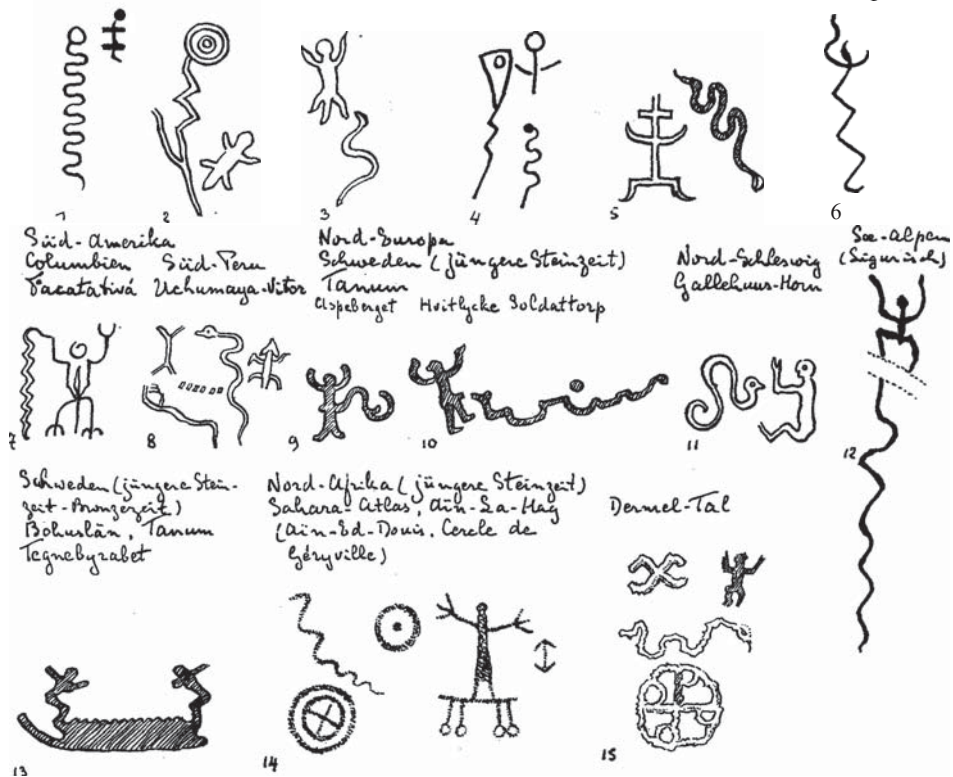 1
2
3
4
5
6
Süd-Amerika
Columbien
Facatativá
Süd-Peru
Uchumaya-Vitor
Nord-Europa
Schweden (jüngere Steinzeit)
Tanum
Aspeberget Hvitlycke Soldattorp
Nord-Schleswig
Gallehuus-Horn
See-Alpen
(Ligurisch)
7
8
9
10
11
12
Schweden (jüngere Stein-
zeit-Bronzezeit)
Bohuslän, Tanum
Tegnebyrabet
Nord-Afrika (jüngere Steinzeit)
Sahara-Atlas, Aïn-La-Hag
(Aïn-Ed-Douis, Cercle de
Géryville)
Dermel-Tal
13
14
15